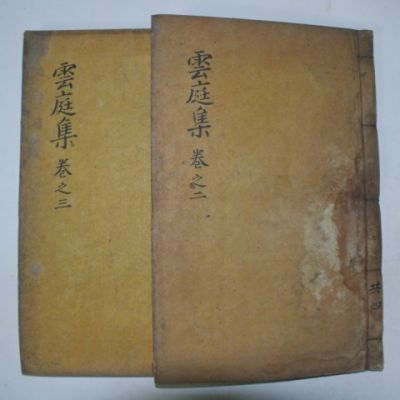 雲庭集 卷之二
雲庭集 卷之三